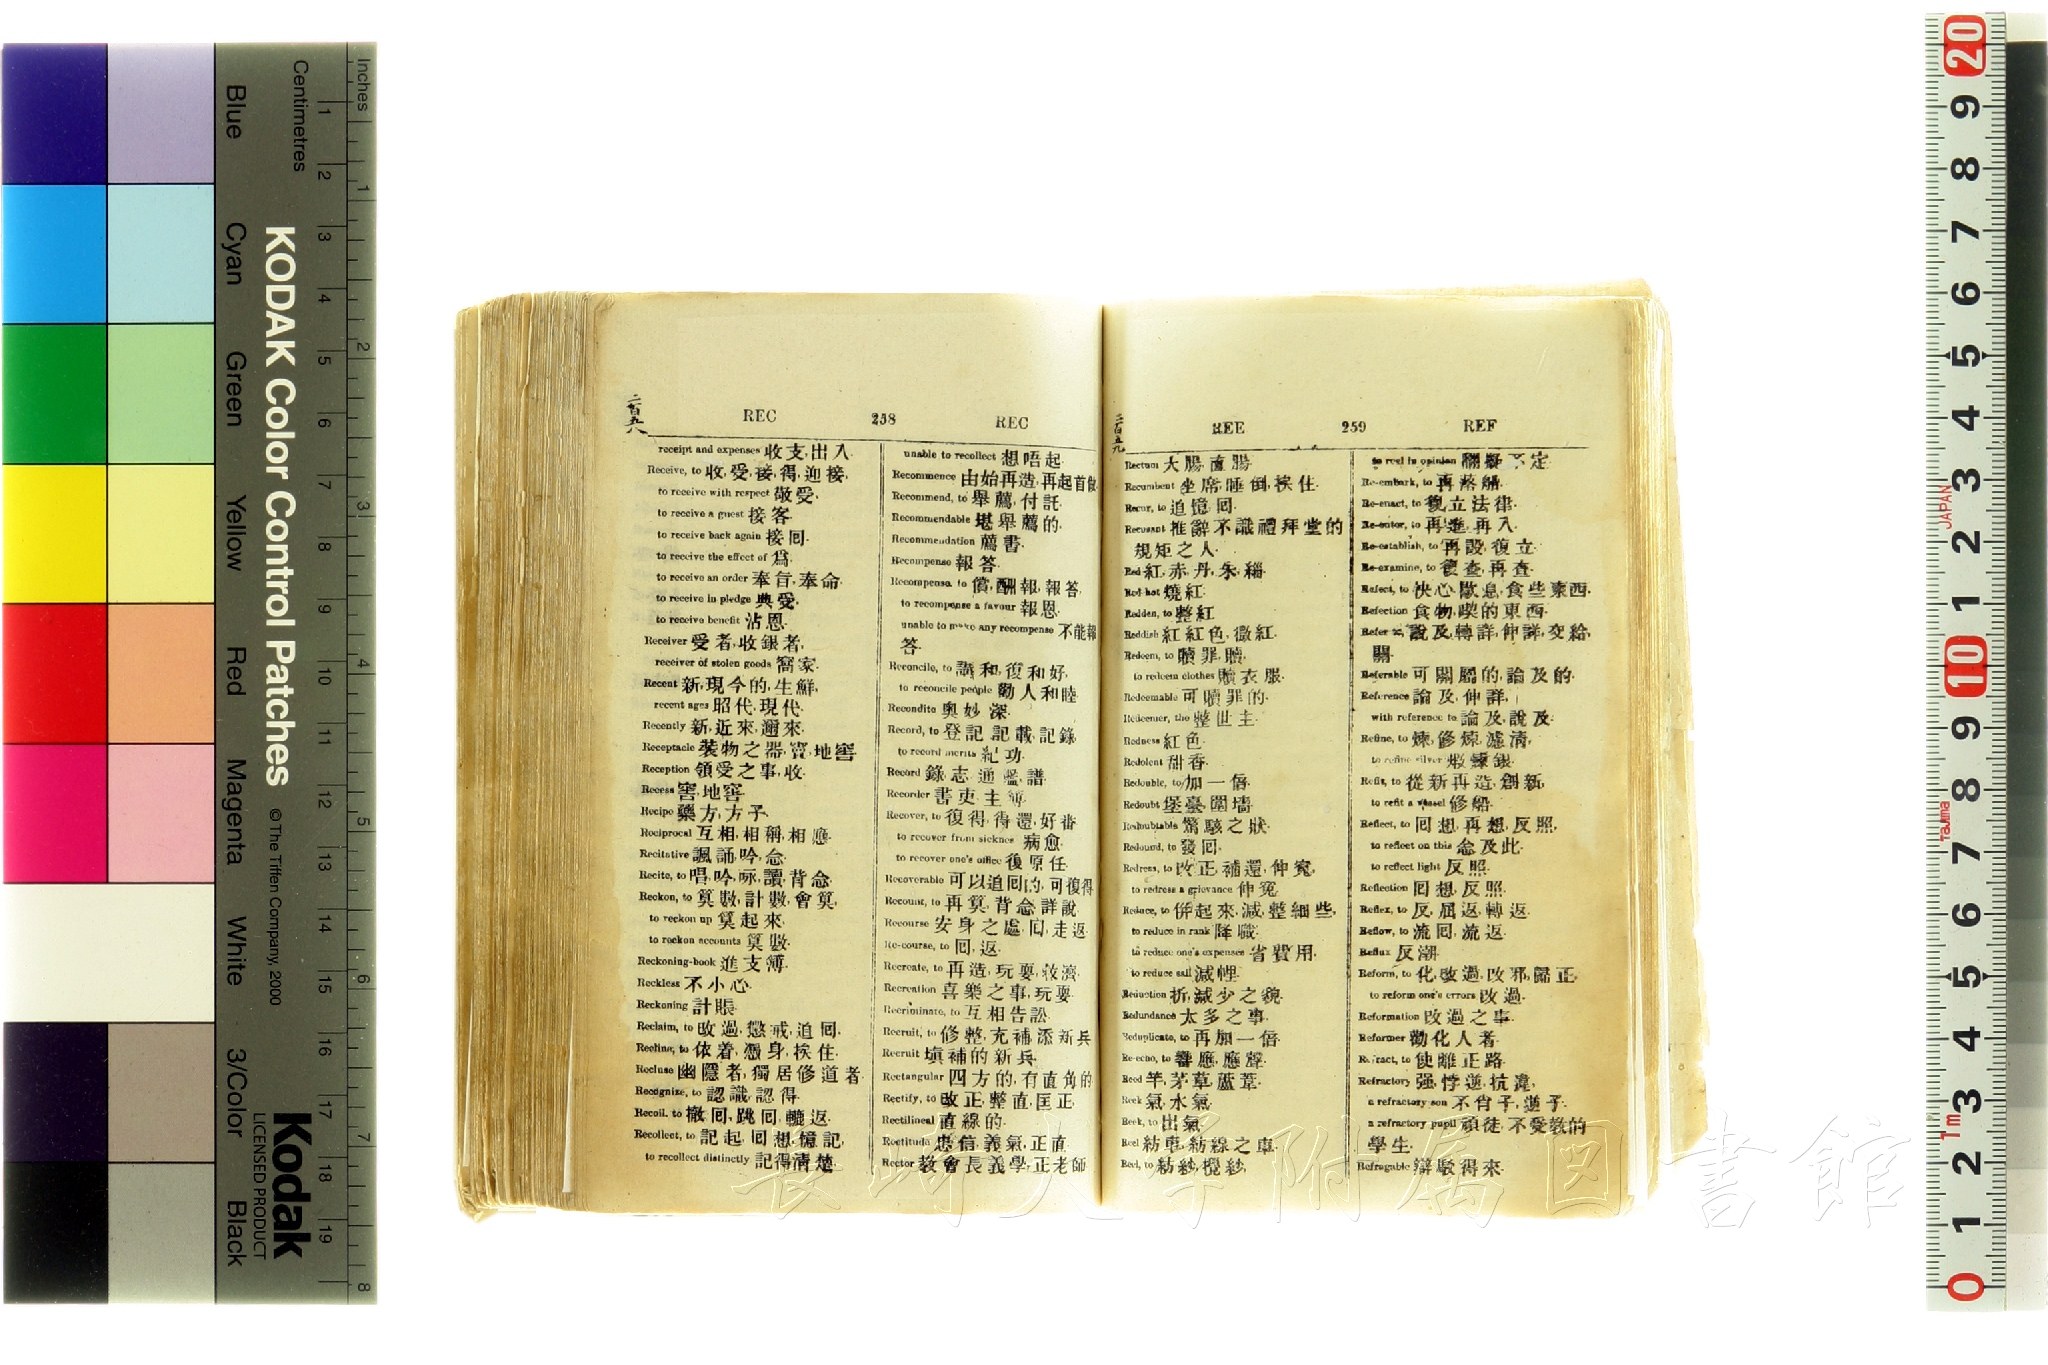 Inches
Centimetres
1 2 3 4 5 6 7 8
1 2 3 4 5 6 7 8 9 10 11 12 13 14 15 16 17 18 19
Blue
Cyan
Green
Yellow
Red
Magenta
White
3/Color
Black
KODAK Color Control Patches
© The Tiffen Company, 2000
Kodak
LICENSED PRODUCT
二百五八
REC 258 REC
receipt and expenses 收支,出入.
Receive, to 收,受,接,得,迎接,
to receive with respect 敬受.
to receive a guest 接客
to receive back again 接回.
to receive the effect of 爲.
to receive an order 奉旨,奉命.
to receive in pledge 典受,
to receive benefit 沾恩.
Receiver 受者,收銀者,
receiver of stolen goods 窩家.
Recent 新,現今的,生鮮,
recent ages 昭代,現代.
Recently 新,近來,邇來.
Receptacle 裝物之器,窖,地窖
Reception 領受之事,收.
Recess 窖,地窖.
Recipe 藥方,方子.
Reciprocal 互相,相稱,相應.
Recitative 諷誦,吟,念.
Recite, to 唱,吟,咏,讀,背念.
Reckon, to 算數,計數,會算,
to reckon up 算起來.
to reckon accounts 算數.
Reckoning-book 進支簿.
Reckless 不小心.
Reckoning 計賬.
Reclaim, to 改過,懲戒,追回.
Recline, to 依着,憑身,挨住.
Recluse 幽隱者,獨居修道者
Recognize, to 認識,認得.
Recoil, to 撤回,跳回,轆返.
Recollect, to 記起,回想,憶記,
to recollect distinctly 記得清楚.
unable to recollect 想唔起.
Recommence 由始再造,再起首做
Recommend, to 舉薦,付託.
Recommendable 堪舉薦的.
Recommendation 薦書.
Recompense 報答.
Recompense, to 償,酬報,報答.
to recompense a favour 報恩.
unable to make any recompense 不能報
答.
Reconcile, to 講和,復和好,
to reconcile people 勸人和睦
Recondite 奧妙深.
Record, to 登記,記載,記錄.
to record merits 紀功.
Record 錄,志,通鑑,譜
Recorder 書吏,主簿.
Recover, to 復得,得還,好番
to recover from sickness 病愈.
to recover one's office 復原任.
Recoverable 可以追回的,可復得
Recount, to 再算,背念,詳說.
Recourse 安身之處,回,走返
Re-course, to 回,返.
Recreate, to 再造,玩耍,救濟.
Recreation 喜樂之事,玩耍.
Recriminate, to 互相告訟.
Recruit, to 修整,充補,添新兵
Recruit 塡補的新兵.
Rectangular 四方的,有直角的
Rectify, to 改正,整直,匡正.
Rectilineal 直線的.
Rectitude 忠信,義氣,正直.
Rector 教會長,義學,正老師
二百五九
REE 259 REF
Rectum 大腸,直腸.
Recumbent 坐席,睡倒,挨住.
Recur, to 追憶,回.
Recusant 推辭不識禮拜堂的
規矩之人.
Red 紅,赤,丹,朱,緇.
Red-hot 燒紅.
Redden, to 整紅.
Reddish 紅紅色,微紅.
Redeem, to 贖罪,贖.
to redeem clothes 贖衣服.
Redeemable 可贖罪的.
Redeemer, the 整世主.
Redness 紅色.
Redolent 甜香.
Redouble, to 加一倍.
Redoubt 堡臺,圍墻.
Redoubtable 驚駭之狀.
Redound, to 發回.
Redress, to 改正,補還,伸寃,
to redress a grievance 伸寃.
Reduce, to 併起來,減,整細些,
to reduce in rank 降職.
to reduce one's expenses 省費用.
to reduce sail 減帆.
Reduction 折,減少之貌.
Redundance 太多之事.
Reduplicate, to 再加一倍.
Re-echo, to 響應,應聲.
Reed 竿,茅草,蘆葦.
Reek 氣,水氣.
Reek, to 出氣.
Reel 紡車,紡線之車.
Reel, to 紡紗,攪紗,
to reel in opinion 不定.
Re-embark, to 再落船.
Re-enact, to 復立法律.
Re-enter, to 再進,再入.
Re-establish, to 再設,復立.
Re-examine, to 復查,再查.
Refect, to 快心,歇息,食些東西.
Refection 食物,喫的東西.
Refer to, 說及,轉詳,伸詳,交給,
關.
Referable 可關屬的,論及的.
Reference 論及,伸詳,
with reference to 論及,說及.
Refine, to 煉,修煉,濾清,
to refine silver 煅煉銀.
Refit, to 從新再造,創新,
to refit a vessel 修船.
Reflect, to 回想,再想,反照,
to reflect on this 念及此.
to reflect light 反照.
Reflection 回想,反照.
Reflex, to 反,屈返,轉返.
Reflow, to 流回,流返.
Reflux 反潮.
Reform, to 化,改過,改邪,歸正.
to reform one's errors 改過.
Reformation 改過之事.
Reformer 勸化人者.
Refract, to 使離正路.
Refractory 强,悖逆,抗違,
a refractory son 不肖子,逆子.
a refractory pupil 頑徒,不受教的
學生.
Refragable 辯駁得來.
長崎大学附属図書館
20 9 8 7 6 5 4 3 2 1 10 9 8 7 6 5 4 3 2 1 0
JAPAN
Tajima
1m